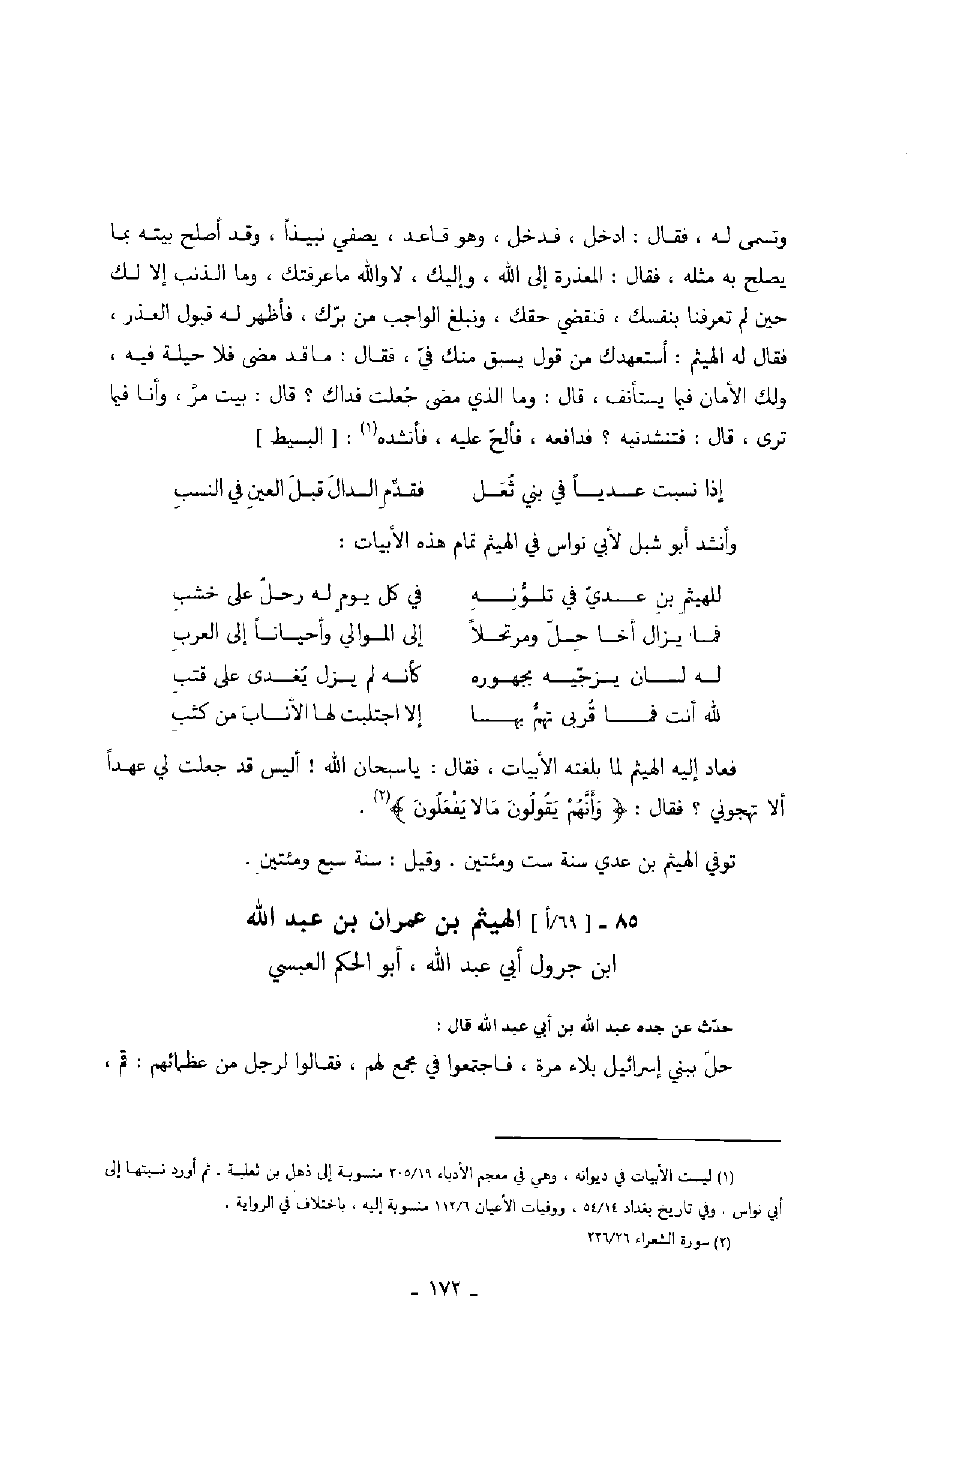 وتسمى له ، فقال : ادخل ، فدخل ، وهو قاعد ، يصفي نبيذاً ، وقد أصلح بيته بما
يصلح به مثله ، فقال : المعذرة إلى الله ، وإليك ، لا والله ماعرفتك ، وما الذنب إلا لك
حين لم تعرفنا بنفسك ، فنقضي حقك ، ونبلغ الواجب من برّك ، فأظهر له قبول العذر ،
فقال له الهيثم : أستعهدك من قول يسبق منك فيّ ، فقال : ماقد مضى فلا حيلة فيه ،
ولك الأمان فيما يستأنف ، قال : وما الذي مضى جُعلت فداك ؟ قال : بيت مرَّ ، وأنا فيما
ترى ، قال : فتنشدنيه ؟ فدافعه ، فألحّ عليه ، فأنشده(١) : [ البسيط ]
إذا نسبت عديـاً في بني ثُعَل فقدّم الدالَ قبلَ العينِ في النسبِ
وأنشد أبو شبل لأبي نواس في الهيثم تمام هذه الأبيات :
للهيثمِ بنِ عديّ في تلوُّنِهِ في كل يومٍ له رحلٌ على خشبِ
فما يزال أخا حِلّ ومرتحلاً إلى الموالي وأحياناً إلى العربِ
له لسان يزجّيه بجهوره كأنه لم يزل يُغدى على قتبِ
لله أنت فما قُربى تهمُّ بها إلا اجتلبت لها الأنسابَ من كثبِ
فعاد إليه الهيثم لما بلغته الأبيات ، فقال : ياسبحان الله ! أليس قد جعلت لي عهداً
ألا تهجوني ؟ فقال : ﴿ وَأَنَّهُمْ يَقُولُونَ مَالا يَفْعَلُونَ ﴾(٢) .
توفي الهيثم بن عدي سنة ست ومئتين . وقيل : سنة سبع ومئتين .
٨٥ ـ [ ٦٩/أ ] الهيثم بن عمران بن عبد الله
ابن جرول أبي عبد الله ، أبو الحكم العبسي
حدّث عن جده عبد الله بن أبي عبد الله قال :
حلّ ببني إسرائيل بلاء مرة ، فاجتمعوا في مجمع لهم ، فقالوا لرجل من عظمائهم : قم ،
(١) ليست الأبيات في ديوانه ، وهي في معجم الأدباء ٣٠٥/١٩ منسوبة إلى ذهل بن ثعلبة . ثم أورد نسبتها إلى
أبي نواس . وفي تاريخ بغداد ٥٤/١٤ ، ووفيات الأعيان ١١٢/٦ منسوبة إليه ، باختلاف في الرواية .
(٢) سورة الشعراء ٢٢٦/٢٦
ـ ١٧٢ ـ